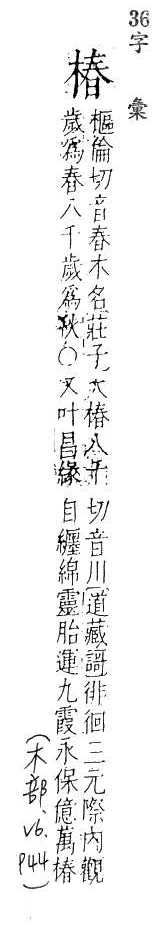 36
字彙
椿
樞倫切音春木名莊子大椿八千
歲爲春八千歲爲秋○又叶昌緣
切音川道藏謌徘徊三元際內觀
自纏綿靈胎運九霞永保億萬椿
(木部、v6. p44)